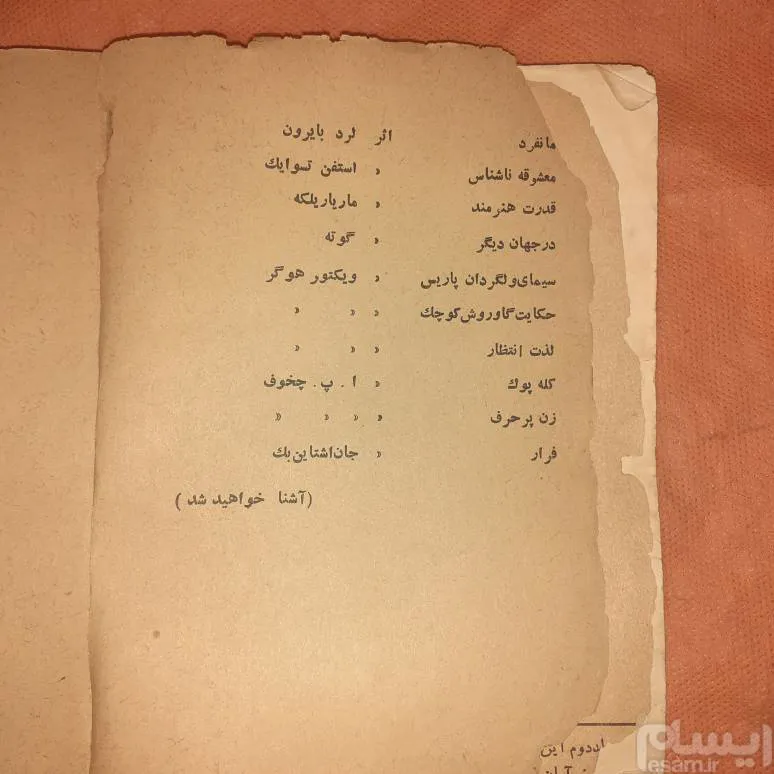 مانفرد اثر لرد بایرون
معشوقه ناشناس « استفن تسوایك
قدرت هنرمند « ماریاریلکه
درجهان دیگر « گوته
سیمای ولگردان پاریس « ویکتور هوگر
حکایت گاوروش کوچك « « «
لذت انتظار « « «
کله پوك « ا . پ . چخوف
زن پرحرف « « « «
فرار « جان اشتاین بك
(آشنا خواهید شد)
لددوم این
ایسام
esam.ir